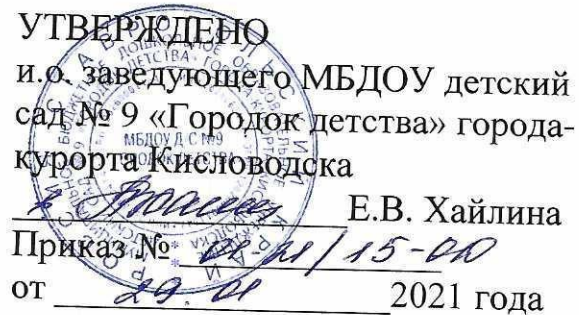 УТВЕРЖДЕНО
и.о. заведующего МБДОУ детский
сад № 9 «Городок детства» города-
курорта Кисловодска
Е.В. Хайлина
Приказ № 01-21/15-ОД
от 29.01 2021 года
МБДОУ Д/С №9
ГОРОДОК ДЕТСТВА